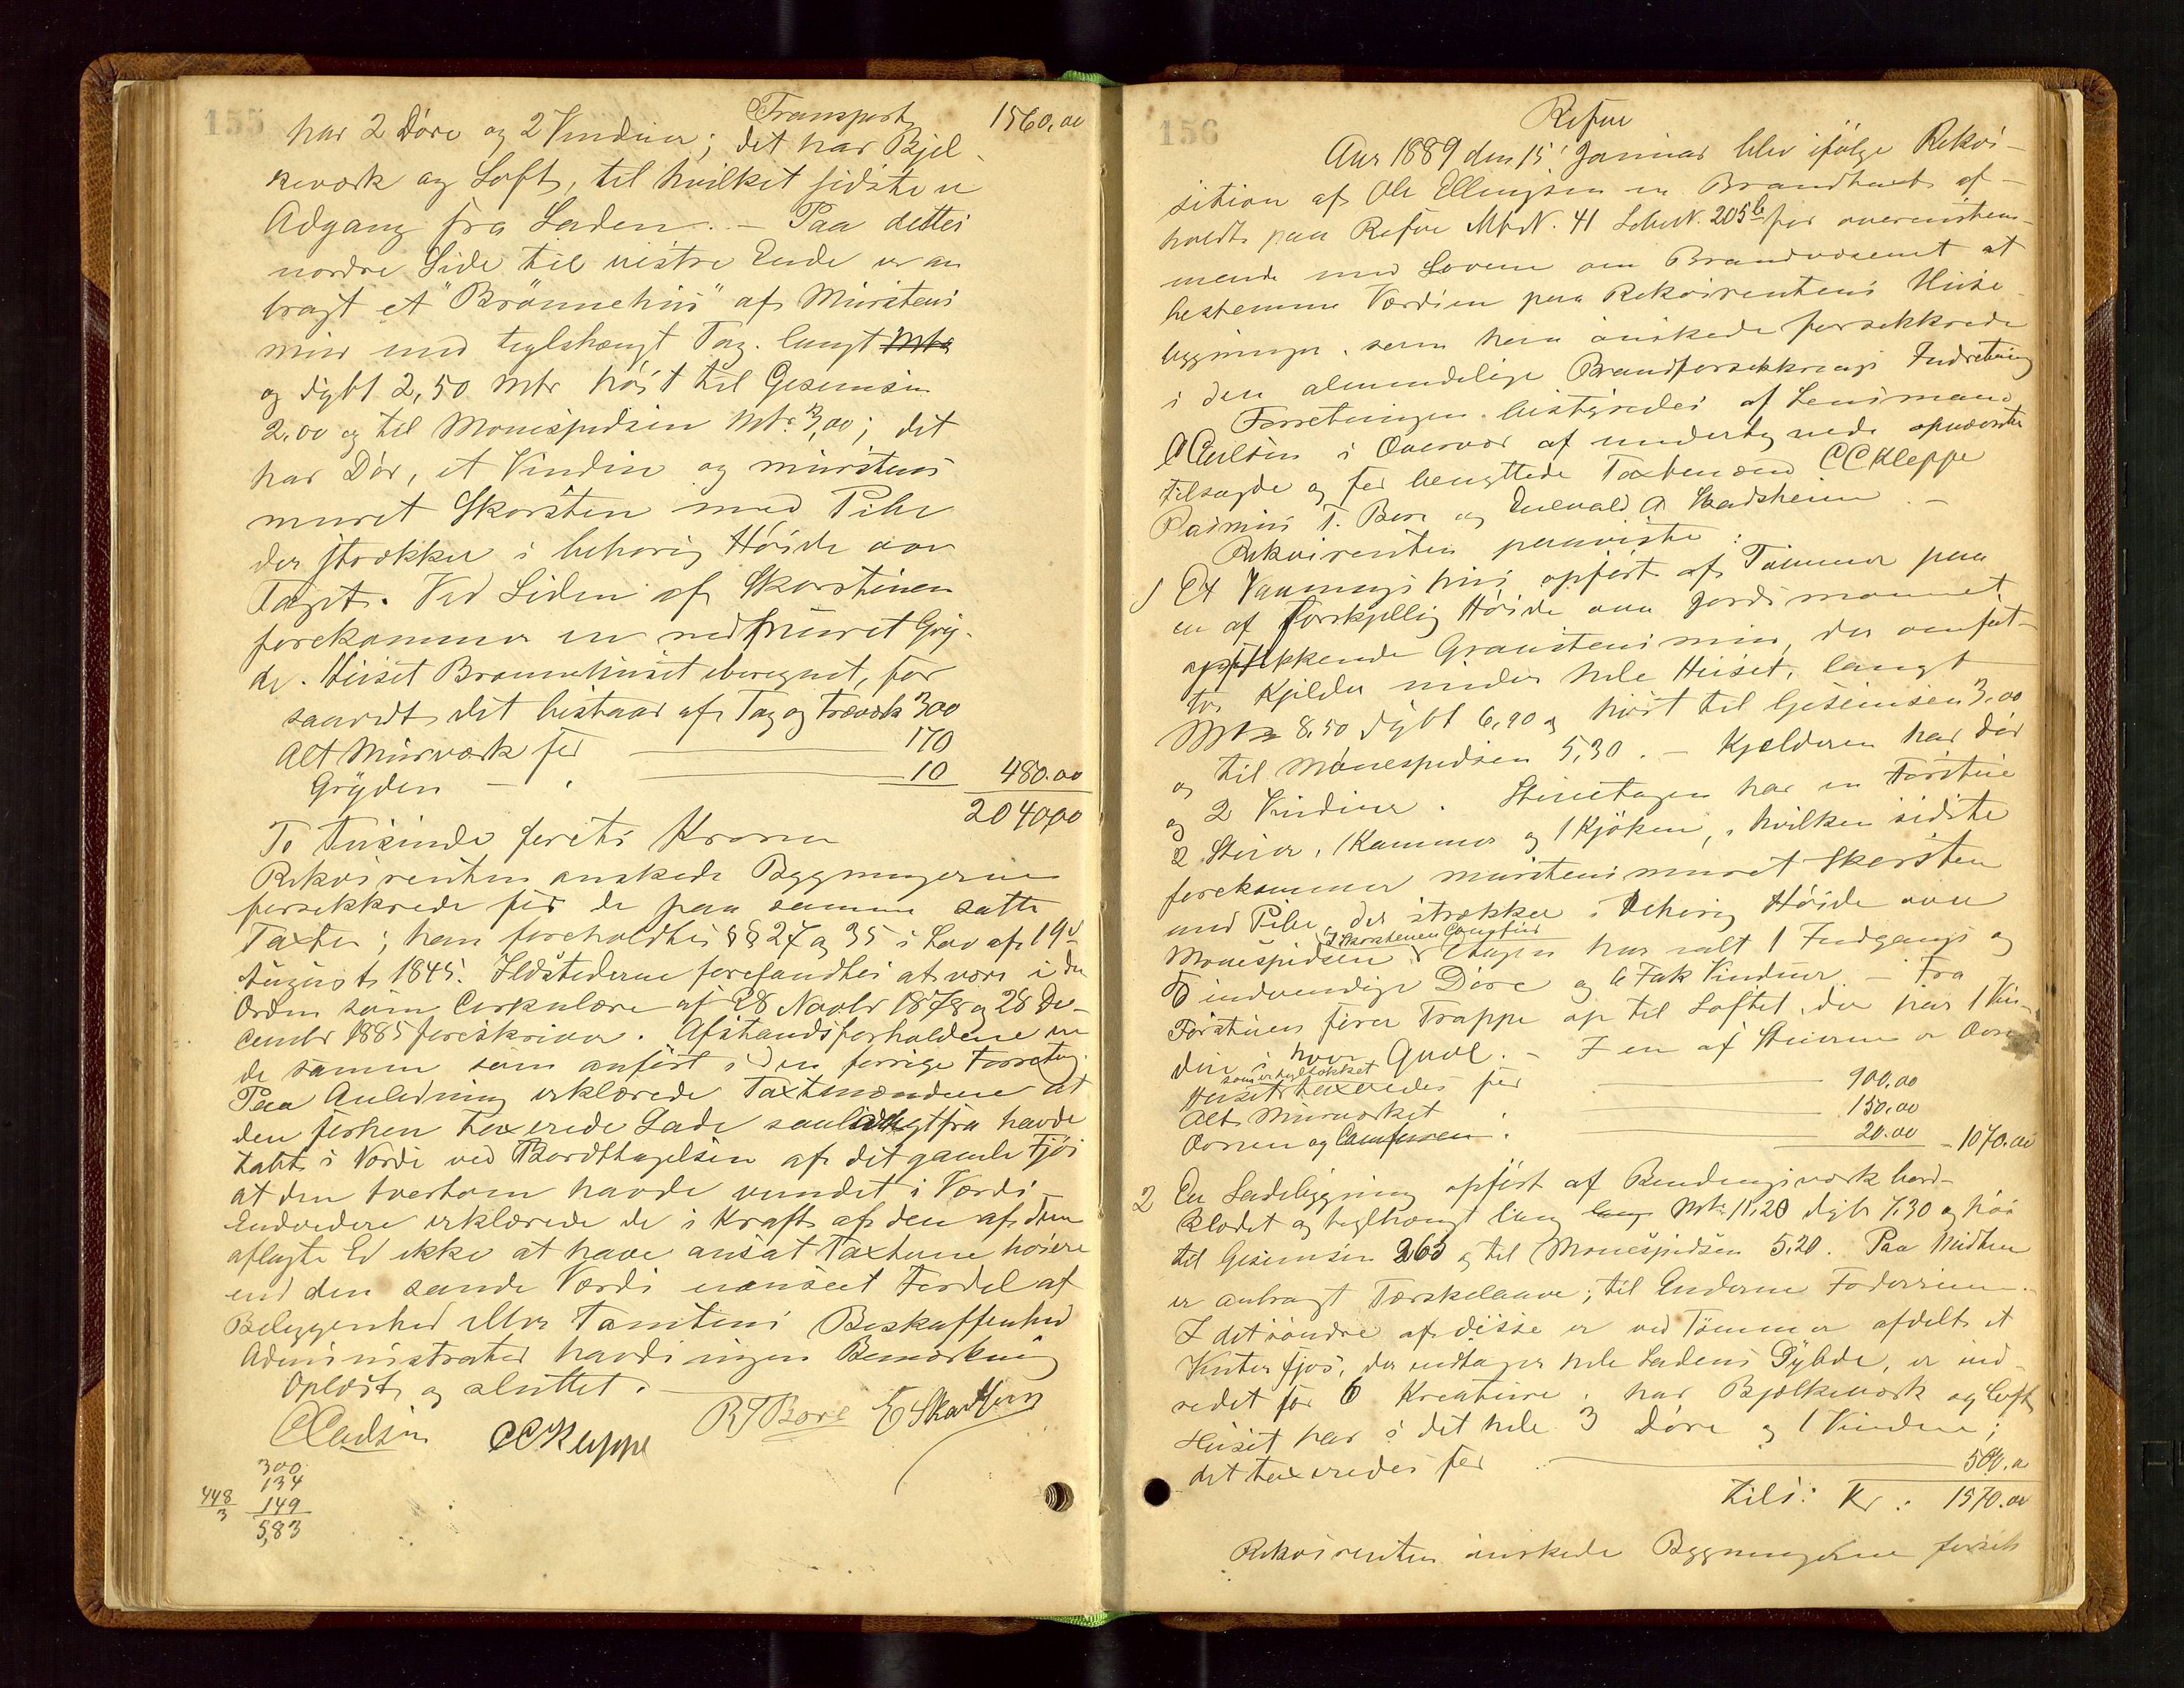 155
Transport 1560,00
har 2 Døre og 2 Vinduer; det har Bjel-
keværk og Loft, til hvilket sidste er
Adgang fra Laden. – Paa dettes
nordre Side til vestre Ende er an
bragt et "Brønnehus" af Murstens
mur med teglehængt Tag. langt Mtr
og dybt 2,50 Mtr høit til Gesimsen
2.00 og til Mønespidsen Mtr. 3,00; det
har Dør, et Vindue og murstens
muret Skorsten med Pibe
der strækker i behørig Høide over
Taget. Ved Siden af Skorstenen
forekommer en nedmuret Gry-
de. Huset Brønnehuset iberegnet, for
saavidt det bestaar af Tag og Træværk 300
Alt Murværk for 170
Gryden – . 10 480.00
2040,00
To Tusinde førti Kroner
Rekvirenten ønskede Bygningerne
forsekkrede for de paa samme satte
Taxter; han foreholdtes §§ 27 og 35 i Lov af 19d
August 1845. Ildstederne forefandtes at være i den
Orden som Cirkulære af 28 Novbr 1878 og 28 De-
cember 1885 foreskriver. Afstandsforholdene er
de samme som anført i den forrige Forretng.
Paa Anledning erklærede Taxtmændene at
den forhen taxerede Lade saalangtfra havde
tabt i Værdi ved Borttagelsen af det gamle Fjøs
at den tvertom havde vundet i Værdi –
Endvidere erklærede de i Kraft af den af dem
aflagte Ed ikke at have ansat Taxterne høiere
end den sande Værdi uanseet Fordel af
Beleggenhed eller Tomtens Beskaffenhed
Administrator havde ingen Bemærkning
Oplæst og sluttet.
CCKleppe RTBore E Skadsheim
300
134
448/3 149
5,83
156
Refve
Aar 1889 den 15' Januar blev ifølge Rekvi-
sition af Ole Ellingsen en Brandtaxt af-
holdt paa Refve Mt.N. 41 LøbeN. 205b for overenstem-
mende med Lovene om Brandvæsenet at
bestemme Værdien paa Rekvirentens Huse
bygninger, som han ønskede forsekkrede
i den almindelige Brandforsekkrings Indretning
Forretningen bestyredes af Lensmand
i Overvær af undertegnede opnævnte
tilsagde og før benyttede Taxtmænd CCKleppe
Rasmus T. Bore og Enevald A Skadsheim. –
Rekvirenten paaviste:
1 Et Vaaningshus opført af Tømmer paa
en af forskjellig Høide over Jordsmonnet
opstikkende Graastensmur, der omfat-
ter Kjelder under hele Huset, langt
Mtr 8,50 dybt 6,90 og høit til Gesimsen 3,00
og til Mønespidsen 5,30. – Kjælderen har Dør
og 2 Vinduer. Stueetagen har en Forstue
2 Stuer, 1 Kammer og 1 Kjøken, i hvilken sidste
forekommer murstensmuret Skorsten
med Pibe, der strækker i behørig Høide over
Mønespidsen. I Skorstenen Comfur Etagen har ialt 1 Indgangs og
5 indvendige Døre og 6 Fak Vinduer – Fra
Forstuen fører Trappe op til Loftet, der har 1 Vin-
due i hver Gavl. – I en af Stuerne er Ovn
Huset som er tegltækket taxeredes for 900,00
Alt Murværket . 150,00
Ovnen og Comfuren . 20.00 – 1070.00
2 En Ladebygning opført af Bindingsværk bord-
klædet og teglhængt lang Mtr. 11,20 dyb 7,30 og høi
til Gesimsen 2,65 og til Mønespidsen 5,20. Paa Midten
er anbragt Tærskelaave; til Enderne Foderrum.
I det søndre af disse er ved Tømmer afdelt et
Vinterfjøs, der indtager hele Ladens Dybde, er ind-
redet for 6 Kreature, har Bjælkeværk og Loft
Huset har i det hele 3 Døre og 1 Vindue;
det taxeredes for 500.00
tils: Kr: 1570.00
Rekvirenten ønskede Bygningerne forsek